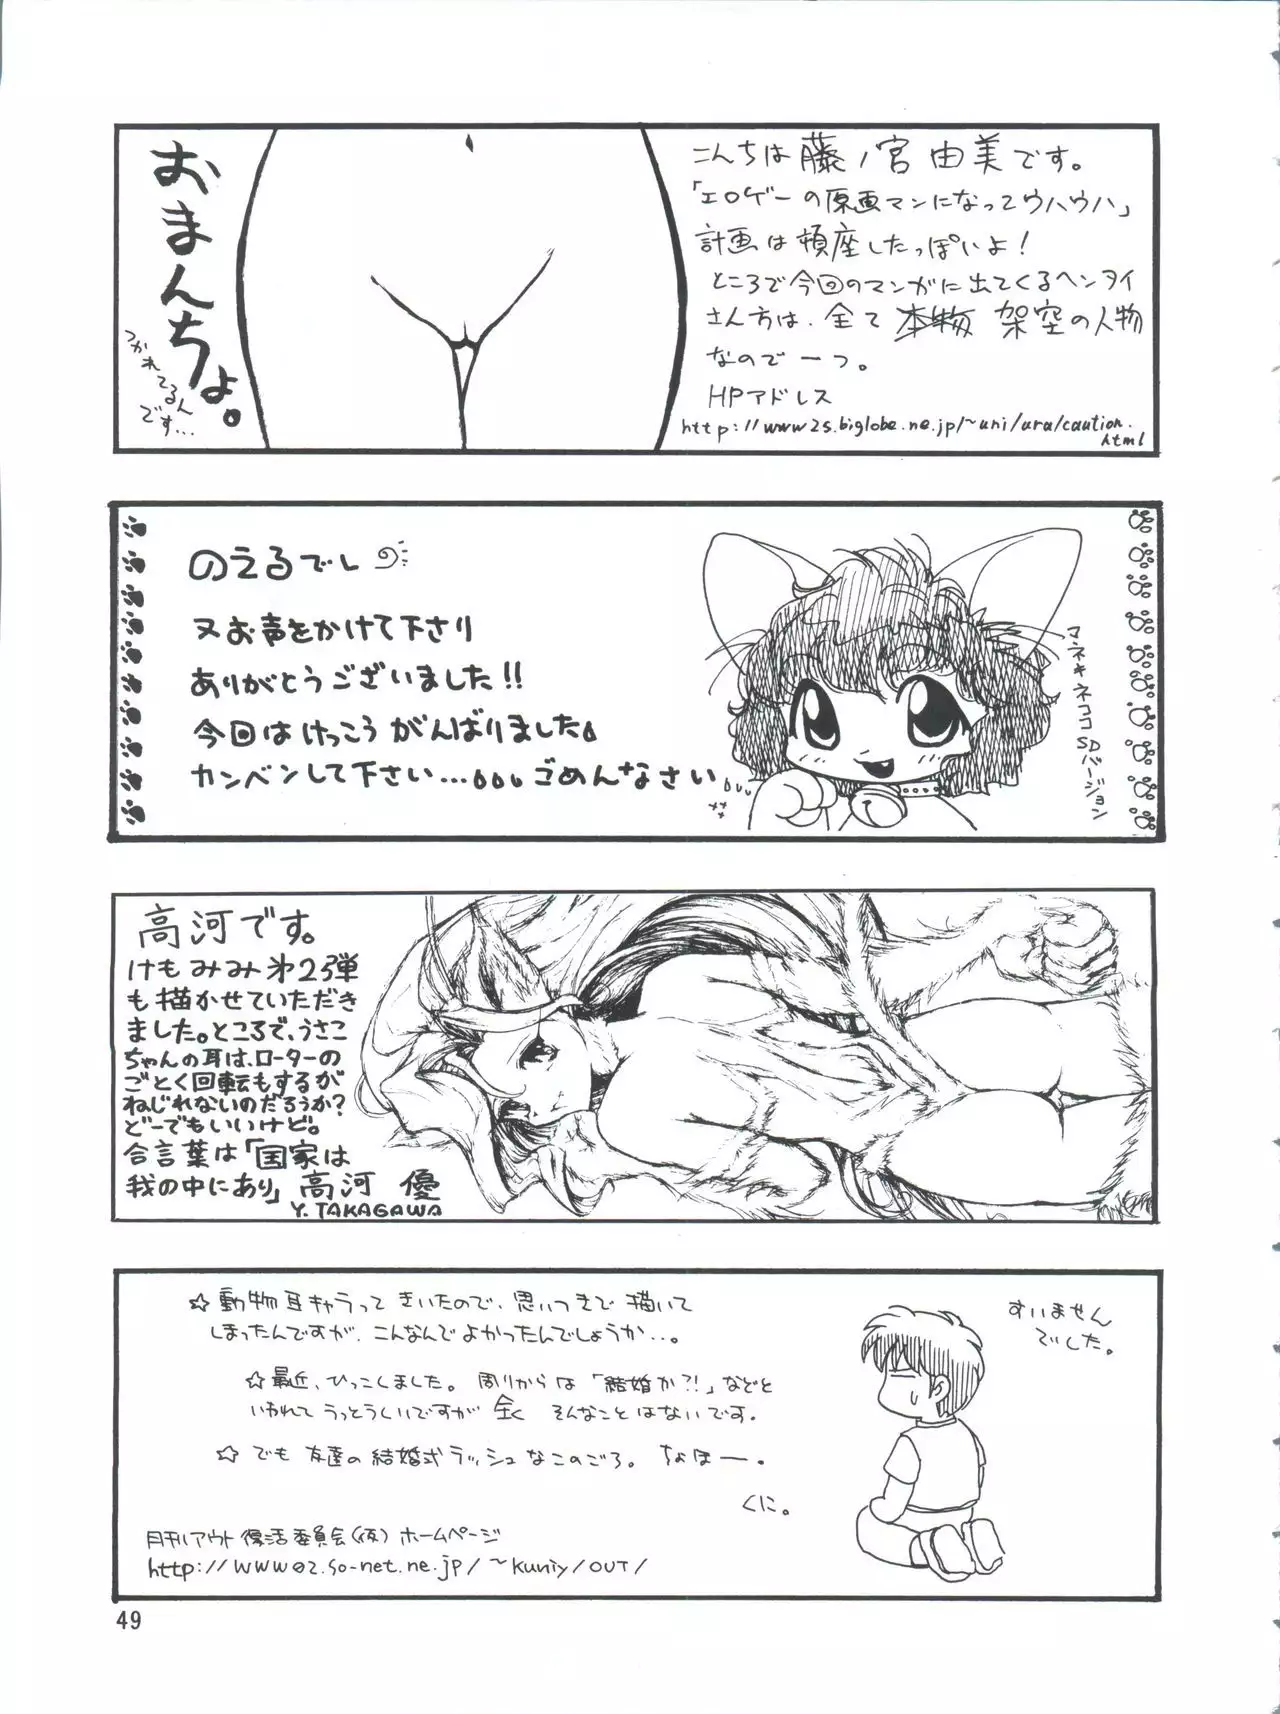 おまんちょ。
つかれてるん
です…
こんちは 藤ノ宮 由美です。
「エロゲーの原画マンになってウハウハ」
計画は頓座したっぽいよ！
ところで今回のマンガに出てくるヘンタイ
さん方は、全て 本物 架空の人物
なのでーっ。
HPアドレス
http://www2s.biglobe.ne.jp/~uni/ura/caution.
html
のえるでし
又お声をかけて下さり
ありがとうございました!!
今回はけっこうがんばりました。
カンベンして下さい…ごめんなさい
マネキネココ
SDバージョン
高河です。
けもみみ第2弾
も描かせていただき
ました。ところで、うさこ
ちゃんの耳は、ローターの
ごとく回転もするが
ねじれないのだろうか?
どーでもいいけど。
合言葉は「国家は
我の中にあり」高河 優
Y.TAKAGAWA
☆動物耳キャラってきいたので、思いつきで描いて
しまったんですが、こんなんでよかったんでしょうか…。
☆最近、ひっこしました。周りからは「結婚か?!」などと
いわれてうっとうしいですが全く そんなことはないです。
☆でも 友達の結婚式ラッシュなこのごろ。ちょほー。
くに。
すいません
でした。
月刊アウト復活委員会(仮) ホームページ
http://www02.so-net.ne.jp/~kuniy/OUT/
49